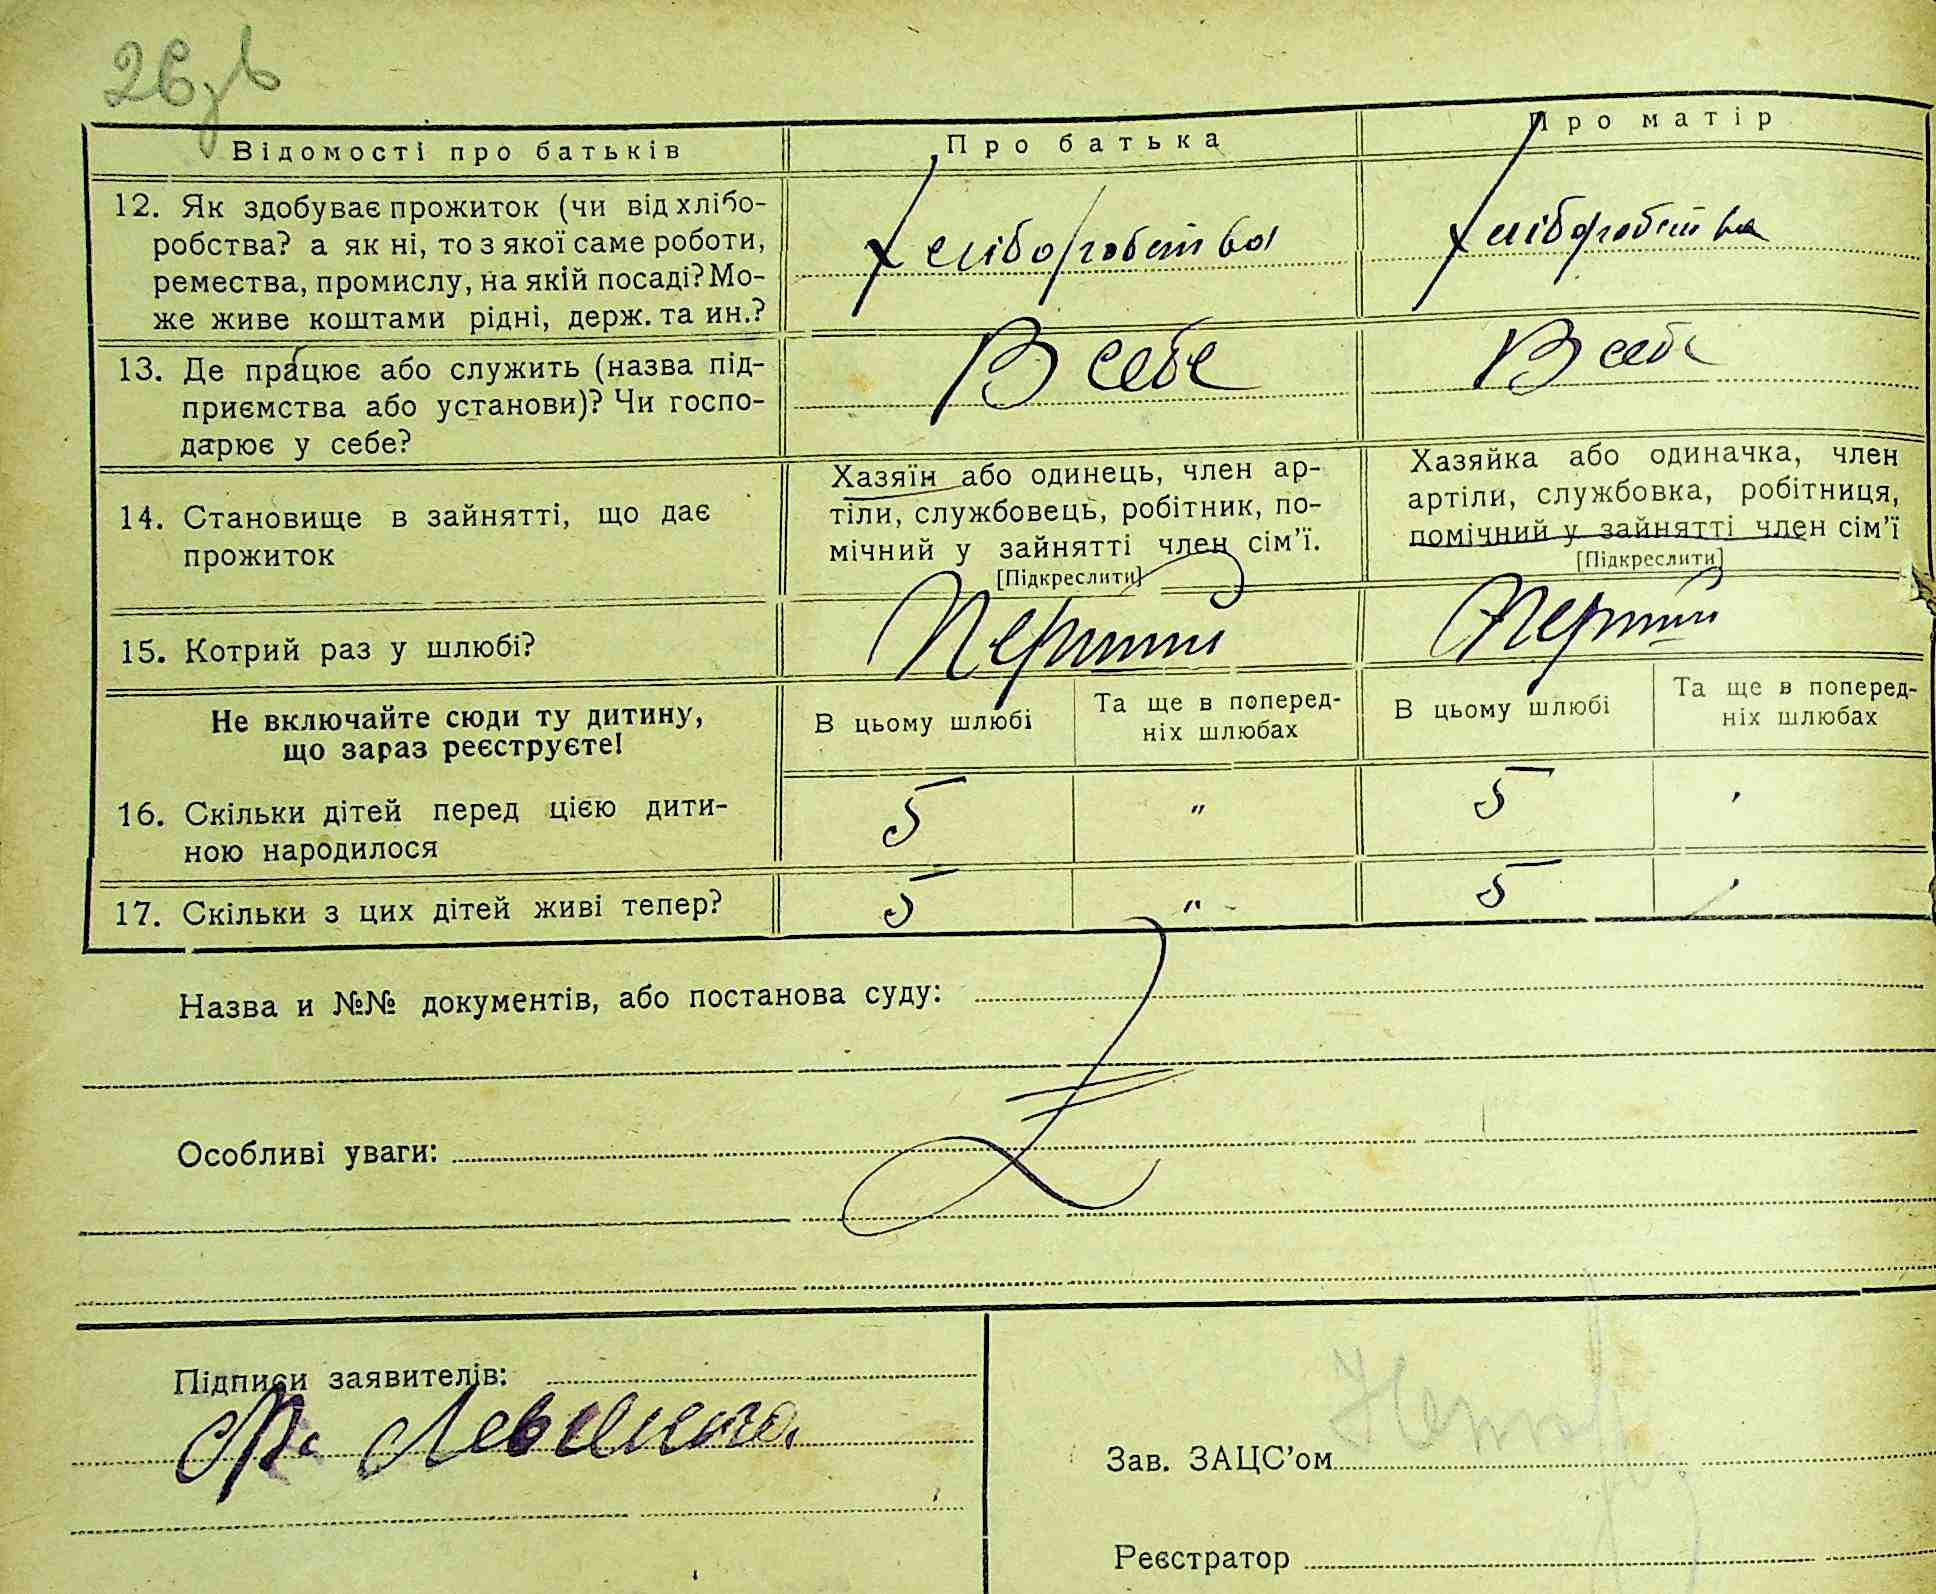 26 зв
Відомості про батьків
Про батька
Про матір
12. Як здобуває прожиток (чи від хлібо-
робства? а як ні, то з якої саме роботи,
ремества, промислу, на якій посаді? Мо-
же живе коштами рідні, держ. та ин.?
Хліборобства
Хліборобства
13. Де працює або служить (назва під-
приємства або установи)? Чи госпо-
дарює у себе?
В себе
В себе
14. Становище в зайнятті, що дає
прожиток
Хазяїн або одинець, член ар-
тіли, службовець, робітник, по-
мічний у зайнятті член сім’ї.
[Підкреслити]
Хазяйка або одиначка, член
артіли, службовка, робітниця,
помічний у зайнятті член сім’ї
[Підкреслити]
15. Котрий раз у шлюбі?
Перший
Перший
Не включайте сюди ту дитину,
що зараз реєструєте!
В цьому шлюбі
Та ще в поперед-
ніх шлюбах
В цьому шлюбі
Та ще в поперед-
ніх шлюбах
16. Скільки дітей перед цією дити-
ною народилося
5 " 5 '
17. Скільки з цих дітей живі тепер?
5 " 5 '
Назва и №№ документів, або постанова суду:
Особливі уваги:
Підписи заявителів:
Зав. ЗАЦС’ом
Реєстратор